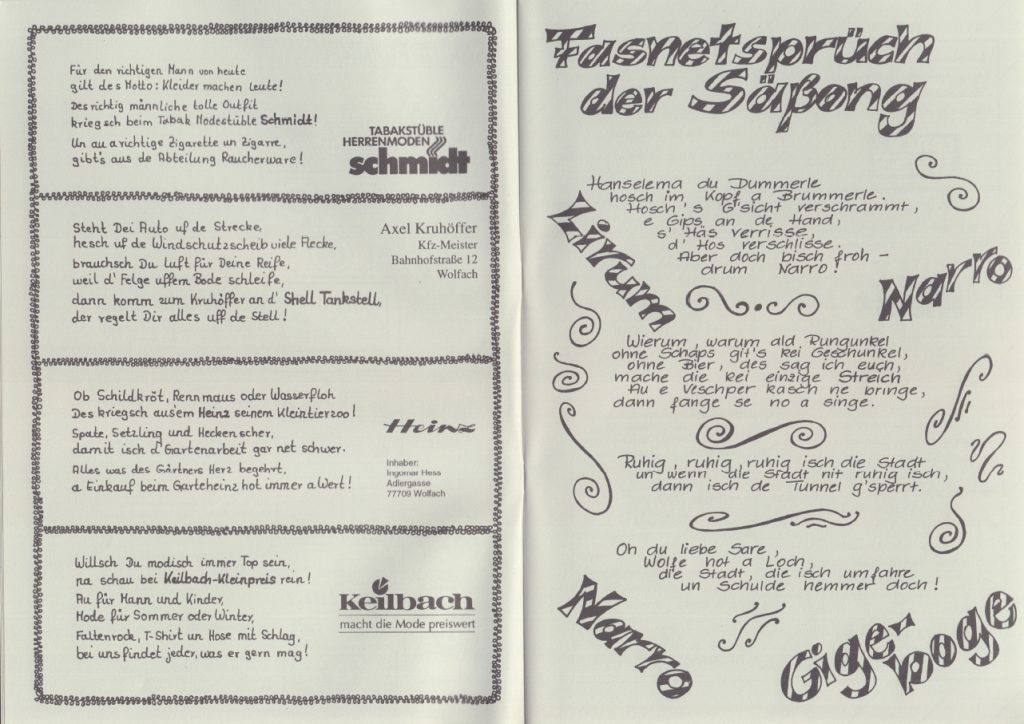 Für den richtigen Mann von heute
gilt des Motto: Kleider machen Leute!
Des richtig männliche tolle Outfit
kriegsch beim Tabak Modestüble Schmidt!
Un au a richtige Zigarette un Zigarre,
gibt's aus de Abteilung Raucherware!
TABAKSTÜBLE
HERRENMODEN
schmidt
Steht Dei Auto uf de Strecke,
hesch uf de Windschutzscheib viele Flecke,
brauchsch Du Luft für Deine Reife,
weil d' Felge uffem Bode schleife,
dann komm zum Kruhöffer an d' Shell Tankstell,
der regelt Dir alles uff de Stell!
Axel Kruhöffer
Kfz-Meister
Bahnhofstraße 12
Wolfach
Ob Schildkröt, Rennmaus oder Wasserfloh
Des kriegsch ausem Heinz seinem Kleintierzoo!
Spate, Setzling und Heckenscher,
damit isch d'Gartenarbeit gar net schwer.
Alles was des Gärtners Herz begehrt,
a Einkauf beim Garteheinz hot immer a Wert!
Heinz
Inhaber:
Ingomar Hess
Adlergasse
77709 Wolfach
Willsch Du modisch immer Top sein,
na schau bei Keilbach-Kleinpreis rein!
Au für Mann und Kinder,
Mode für Sommer oder Winter,
Faltenrock, T-Shirt un Hose mit Schlag,
bei uns findet jeder, was er gern mag!
Keilbach
macht die Mode preiswert
Fasnetsprüch
der Säßong
Hanselema du Dummerle
hosch im Kopf a Brummerle.
Hosch 's G'sicht verschrammt,
e Gips an de Hand,
s' Häs verrisse,
d' Hos verschlisse.
Aber doch bisch froh -
drum Narro!
Zirum
Narro
Wierum, warum ald Rungunkel
ohne Schaps git's kei Geschunkel,
ohne Bier, des sag ich euch,
mache die kei einzige Streich
Au e Veschper kasch ne bringe,
dann fange se no a singe.
Ruhig, ruhig, ruhig isch die Stadt
un wenn die Stadt nit ruhig isch,
dann isch de Tunnel g'sperrt.
Oh du liebe Sare,
Wolfe hot a Loch,
die Stadt, die isch umfahre
un Schulde hemmer doch!
Narro
Gige-
boge